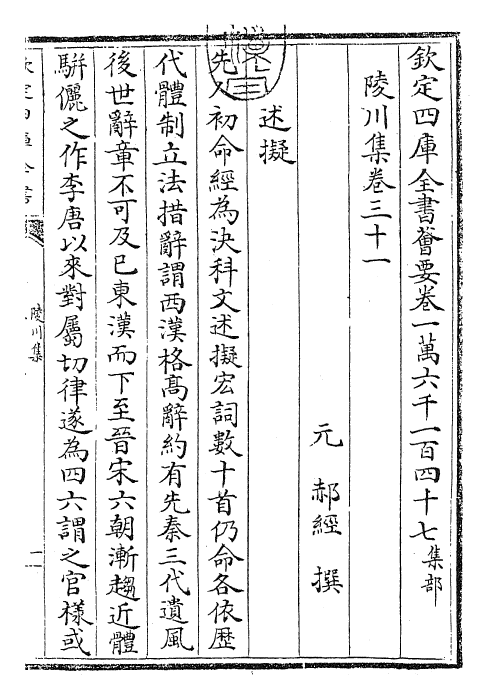 欽定四庫全書薈要卷一萬六千一百四十七集部
陵川集卷三十一
元 郝經 撰
述擬
先人初命經為決科文述擬宏詞數十首仍命各依歷
代體制立法措辭謂西漢格高辭約有先秦三代遺風
後世辭章不可及已東漢而下至晉宋六朝漸趨近體
駢儷之作李唐以來對屬切律遂為四六謂之官樣或
陵川集
一